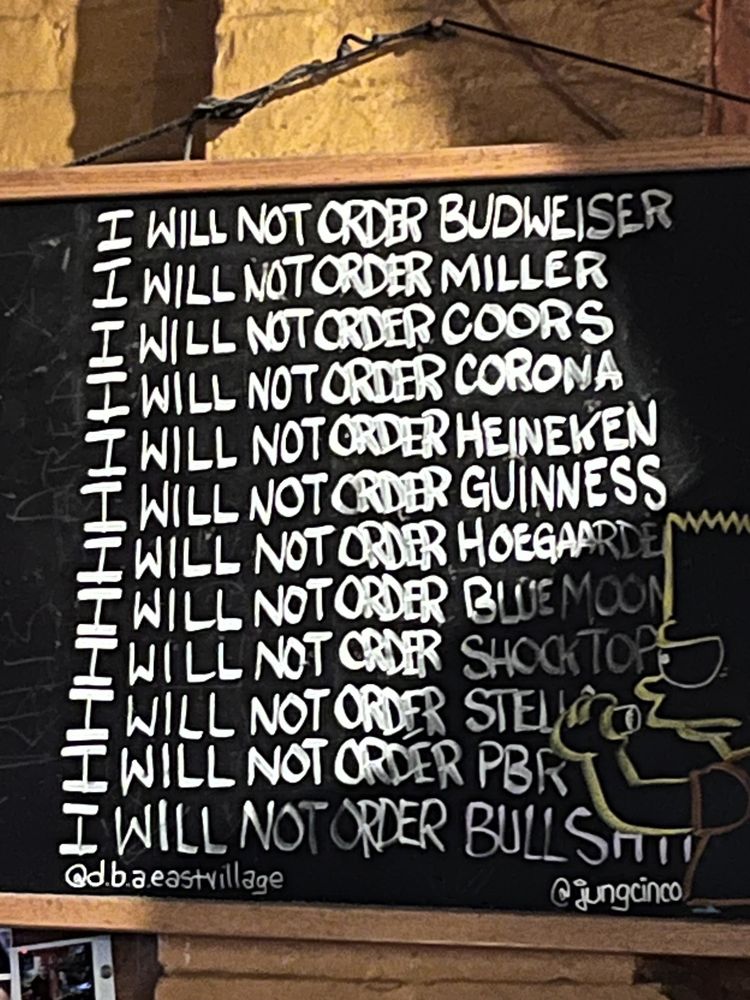 I WILL NOT ORDER BUDWEISER
I WILL NOT ORDER MILLER
I WILL NOT ORDER COORS
I WILL NOT ORDER CORONA
I WILL NOT ORDER HEINEKEN
I WILL NOT ORDER GUINNESS
I WILL NOT ORDER HOEGAARDE
I WILL NOT ORDER BLUE MOON
I WILL NOT ORDER SHOCKTOP
I WILL NOT ORDER STELLA
I WILL NOT ORDER PBR
I WILL NOT ORDER BULLSHIT
@d.b.a.eastvillage
@jungcinco